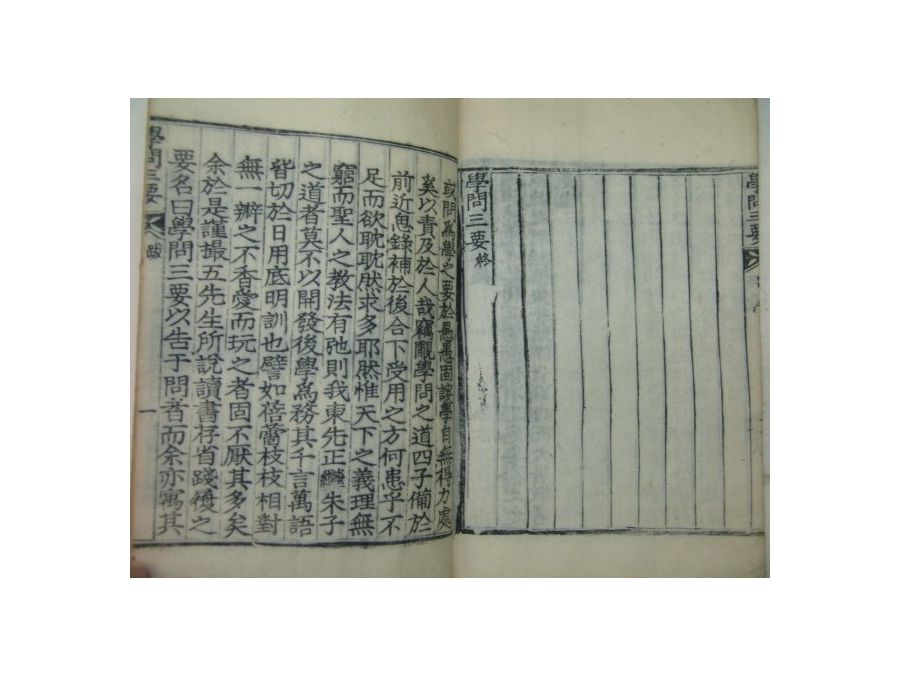 學問三要
學問三要終
或問爲學之要於愚愚固誤學自無得力處
矣以責及於人哉竊覵學問之道四子備於
前近思錄補於後合下受用之方何患乎不
足而欲耽耽然求多耶然惟天下之義理無
窮而聖人之教法有弛則我東先正繼朱子
之道者莫不以開發後學爲務其千言萬語
皆切於日用底明訓也譬如蓓蕾枝枝相對
無一瓣之不香愛而玩之者固不厭其多矣
余於是謹撮五先生所說讀書存省踐履之
要名曰學問三要以告于問者而余亦寓其
學問三要 跋 一